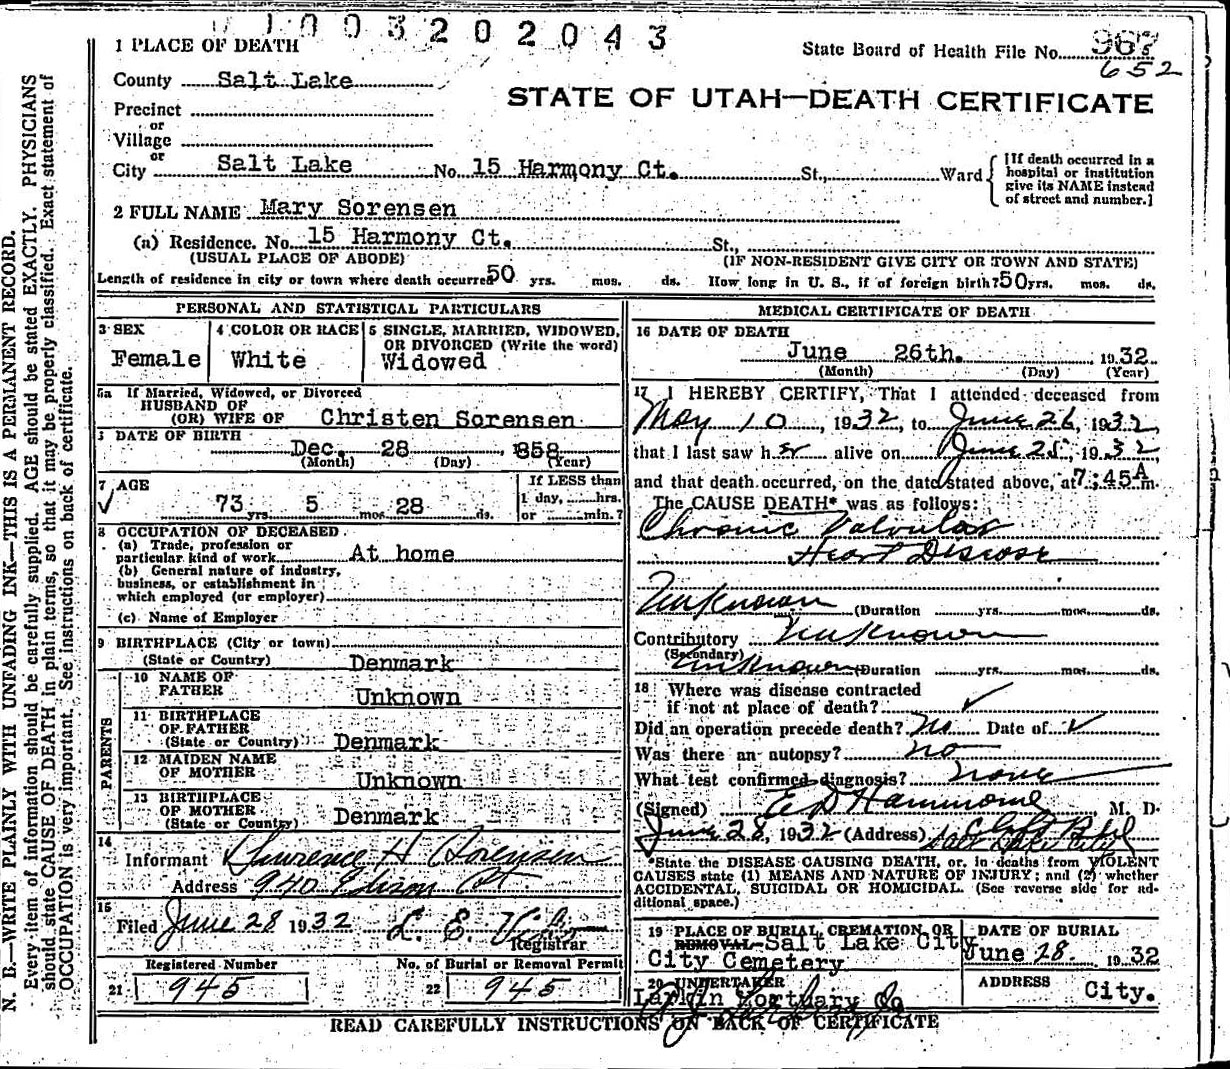 1003202043
1 PLACE OF DEATH
State Board of Health File No.
652
County Salt Lake
STATE OF UTAH—DEATH CERTIFICATE
Precinct
or
Village
or
City Salt Lake No. 15 Harmony Ct. St., Ward
[If death occurred in a
hospital or institution
give its NAME instead
of street and number.]
2 FULL NAME Mary Sorensen
(a) Residence. No. 15 Harmony Ct. St.,
(USUAL PLACE OF ABODE) (IF NON-RESIDENT GIVE CITY OR TOWN AND STATE)
Length of residence in city or town where death occurred 50 yrs. mos. ds. How long in U. S., if of foreign birth? 50 yrs. mos. ds.
PERSONAL AND STATISTICAL PARTICULARS
3 SEX
Female
4 COLOR OR RACE
White
5 SINGLE, MARRIED, WIDOWED,
OR DIVORCED (Write the word)
Widowed
5a If Married, Widowed, or Divorced
HUSBAND OF
(OR) WIFE OF Christen Sorensen
DATE OF BIRTH
Dec. 28, 1858
(Month) (Day) (Year)
7 AGE
73 yrs. 5 mos. 28 ds.
If LESS than
1 day, hrs.
or min.?
8 OCCUPATION OF DECEASED
(a) Trade, profession or
particular kind of work At home
(b) General nature of industry,
business, or establishment in
which employed (or employer)
(c) Name of Employer
9 BIRTHPLACE (City or town)
(State or Country) Denmark
PARENTS
10 NAME OF
FATHER Unknown
11 BIRTHPLACE
OF FATHER
(State or Country) Denmark
12 MAIDEN NAME
OF MOTHER Unknown
13 BIRTHPLACE
OF MOTHER
(State or Country) Denmark
14
Informant Lawrence H Sorensen
Address 940 Edison St.
15
Filed June 28 1932 L. E.
Registrar
Registered Number
21 945
No. of Burial or Removal Permit
22 945
MEDICAL CERTIFICATE OF DEATH
16 DATE OF DEATH
June 26th. 1932
(Month) (Day) (Year)
17 I HEREBY CERTIFY, That I attended deceased from
May 10, 1932, to June 26, 1932,
that I last saw her alive on June 25, 1932,
and that death occurred, on the date stated above, at 7:45 A m.
The CAUSE DEATH* was as follows:
Chronic Valvular
Heart Disease
Unknown (Duration yrs. mos. ds.
Contributory Unknown
(Secondary)
Unknown (Duration yrs. mos. ds.
18 Where was disease contracted
if not at place of death? ✓
Did an operation precede death? No Date of ✓
Was there an autopsy? no
What test confirmed diagnosis? none
(Signed) E D Hammond M. D.
June 28, 1932 (Address) Salt Lake City
*State the DISEASE CAUSING DEATH, or, in deaths from VIOLENT
CAUSES state (1) MEANS AND NATURE OF INJURY; and (2) whether
ACCIDENTAL, SUICIDAL OR HOMICIDAL. (See reverse side for ad-
ditional space.)
19 PLACE OF BURIAL, CREMATION, OR
REMOVAL Salt Lake City
City Cemetery
DATE OF BURIAL
June 28. 1932
20 UNDERTAKER
Larkin Mortuary Co
ADDRESS
City.
READ CAREFULLY INSTRUCTIONS ON BACK OF CERTIFICATE
N. B.—WRITE PLAINLY WITH UNFADING INK—THIS IS A PERMANENT RECORD.
Every item of information should be carefully supplied. AGE should be stated EXACTLY. PHYSICIANS
should state CAUSE OF DEATH in plain terms, so that it may be properly classified. Exact statement of
OCCUPATION is very important. See instructions on back of certificate.